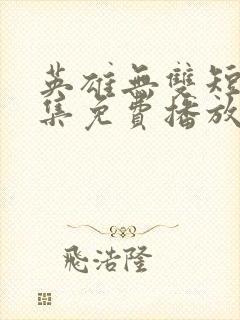 英雄無雙短
集免費播放
飛浩隆